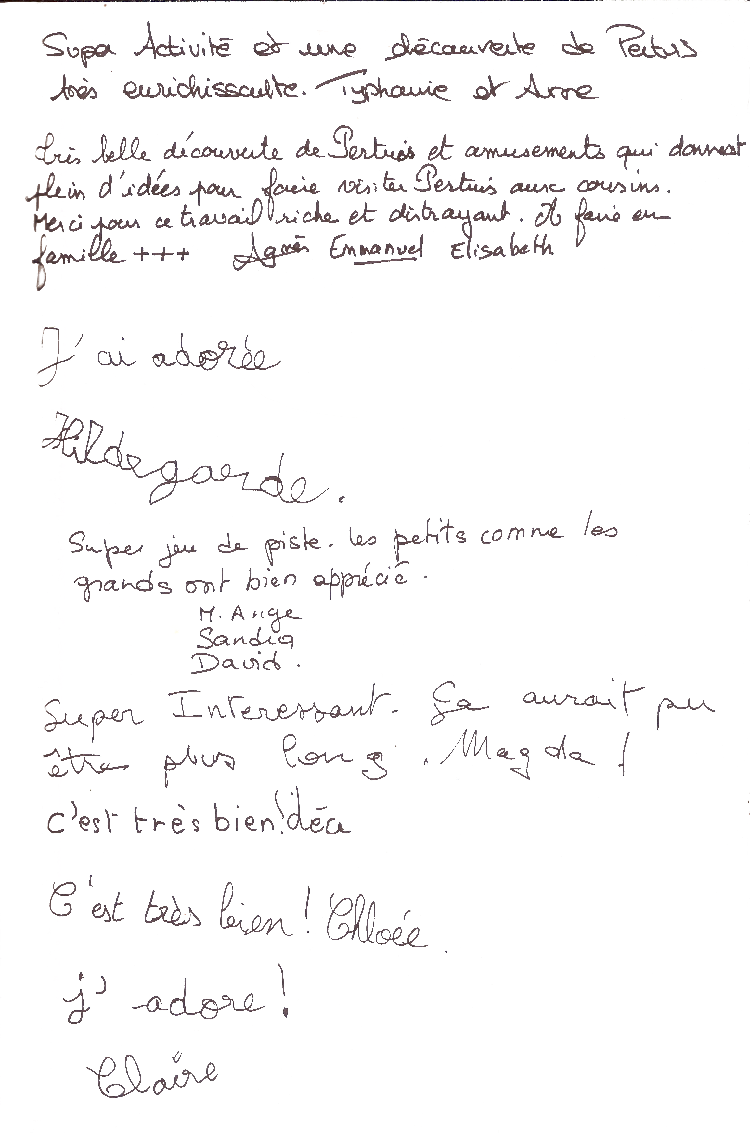 Super Activité et une découverte de Pertuis
très enrichissante. Typhanie et Anne
Très belle découverte de Pertuis et amusements qui donnent
plein d'idées pour faire visiter Pertuis aux cousins.
Merci pour ce travail riche et distrayant. A faire en
famille +++ Agnès Emmanuel Elisabeth
J'ai adorée
Hildegarde.
Super jeu de piste. les petits comme les
grands ont bien apprécié.
M. Ange
Sandra
David.
Super Interessant. ça aurait pu
être plus long. Magda !
c'est très bien! déa
C'est très bien! Chloée
j'adore!
Claire